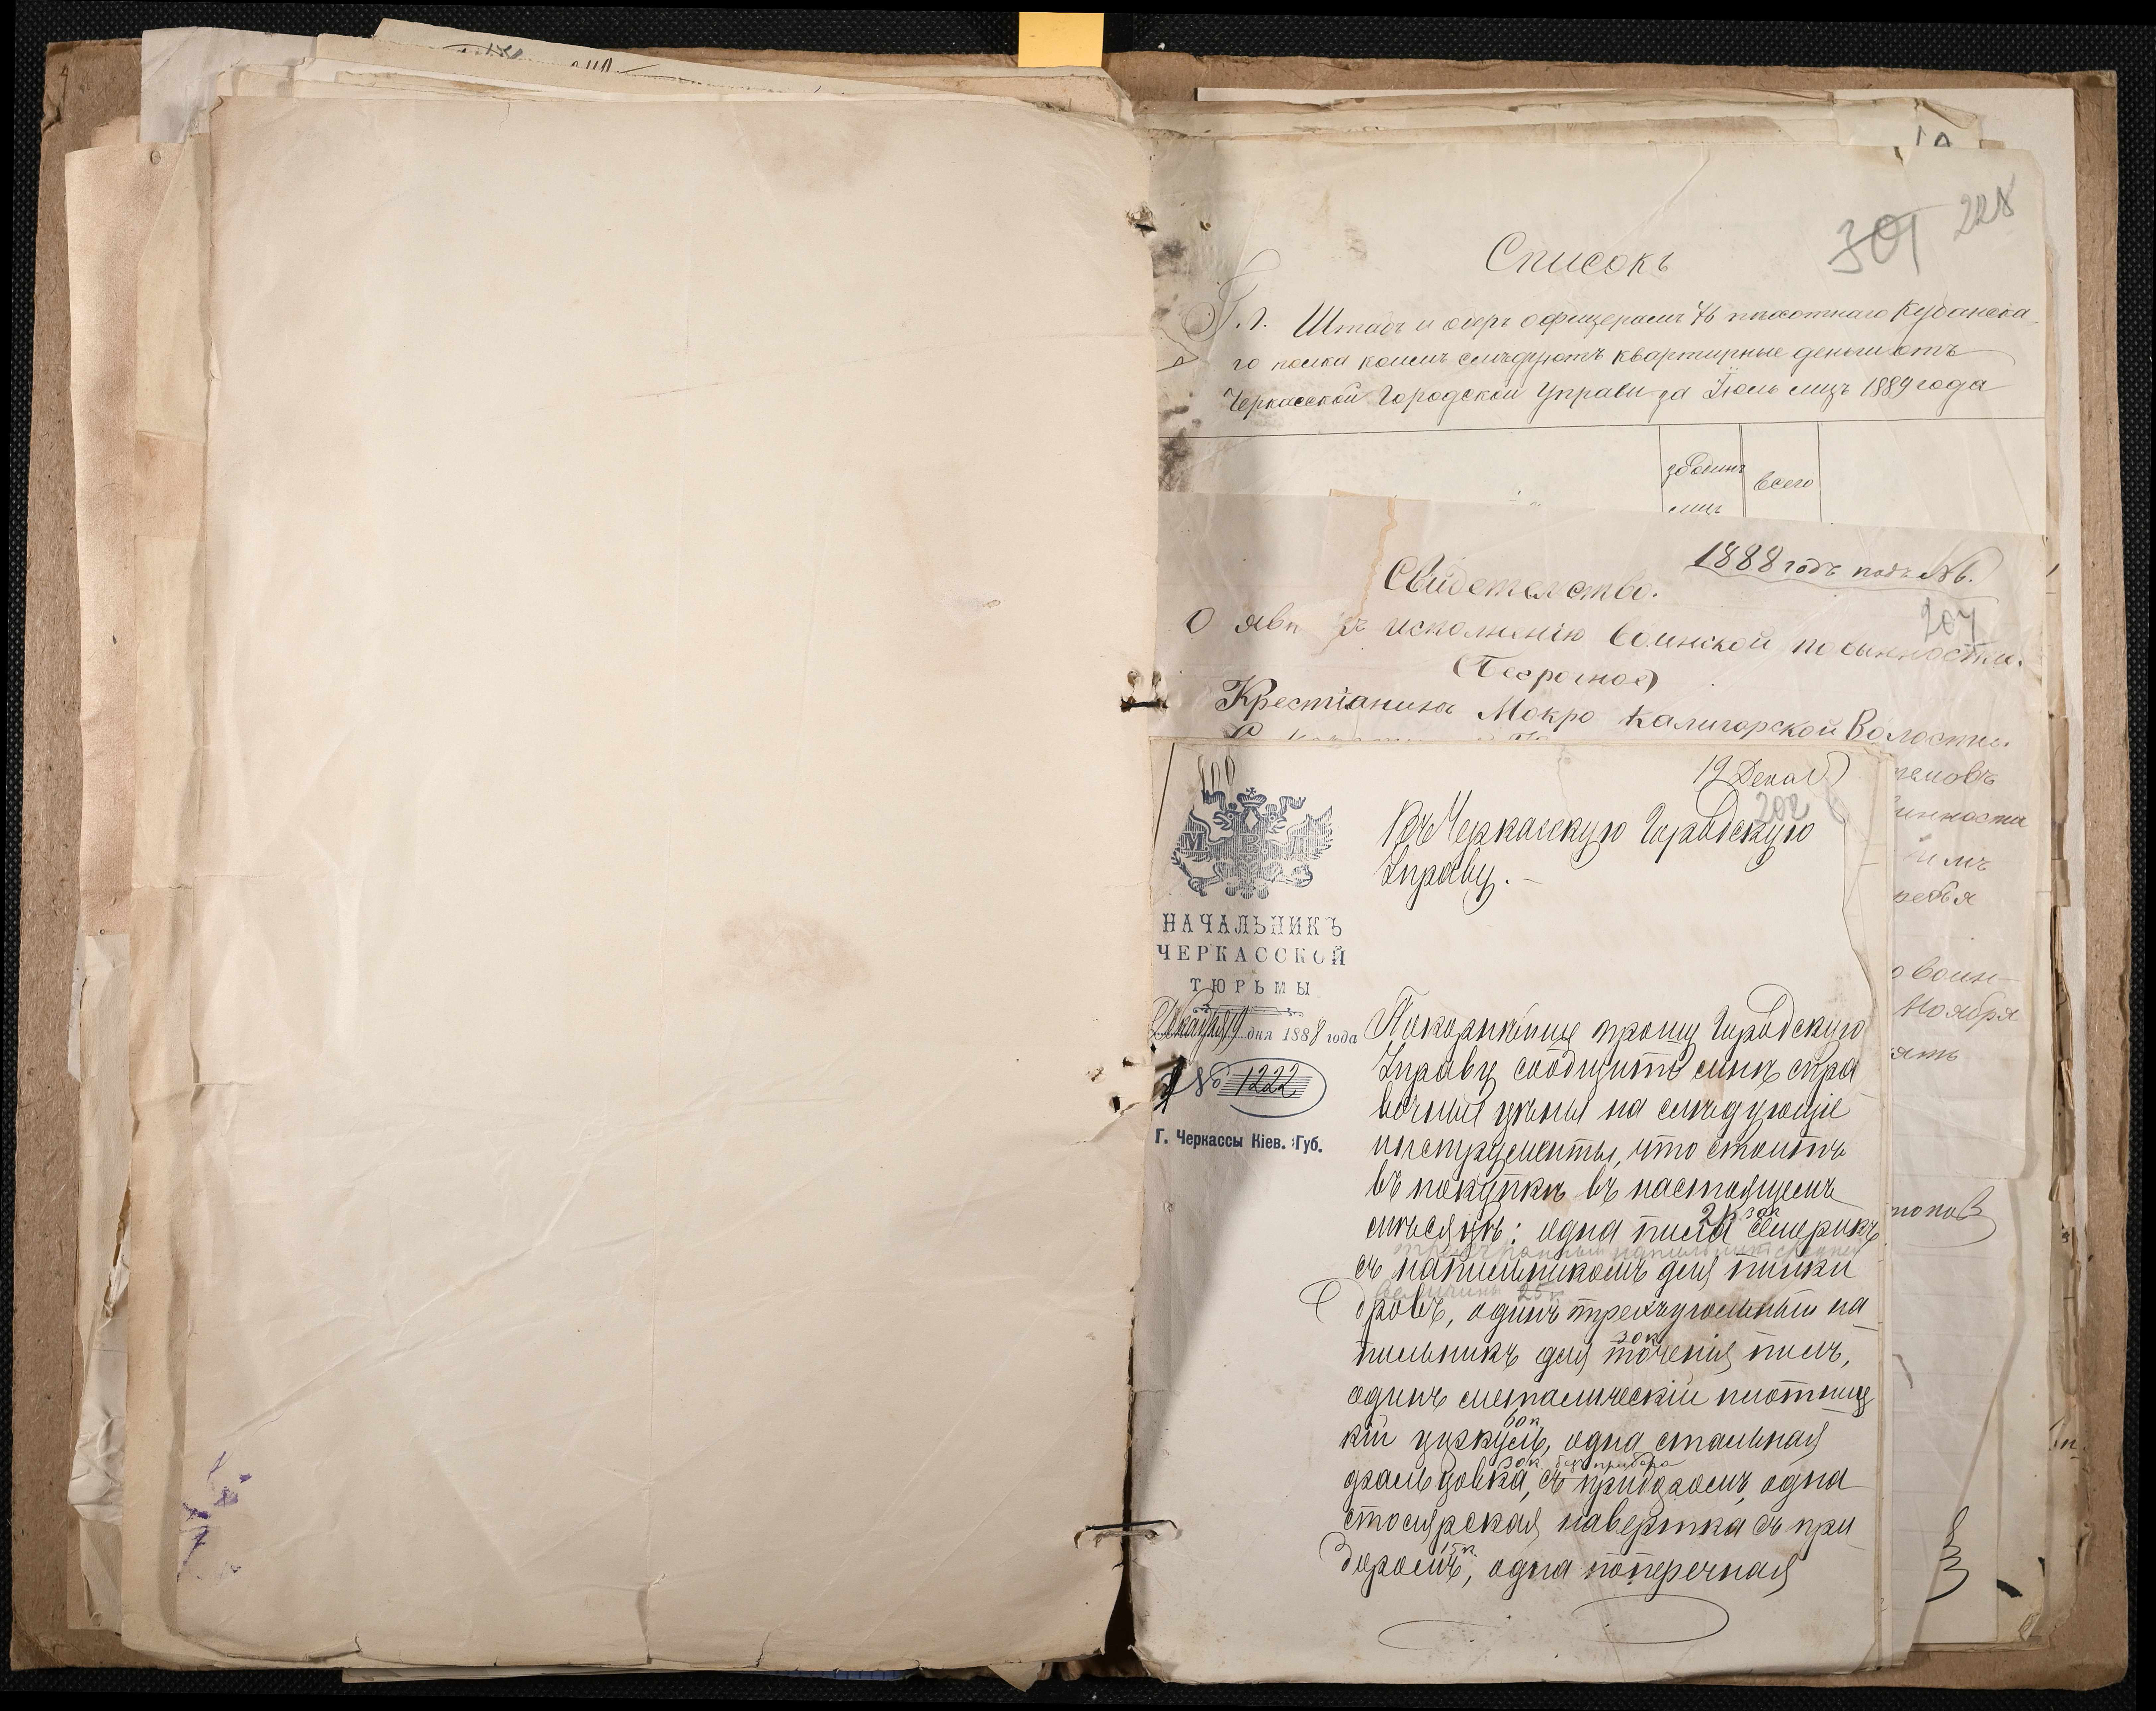 301 228
Списокъ
Г.г. Штабъ и оберъ офицерамъ 76 пѣхотнаго Кубанска-
го полка коимъ слѣдуютъ квартирные деньги отъ
Черкасской Городской Управы за Іюль мцъ 1889 года
всего
1888 годъ подъ № 6.
Свидетельство.
207
О явк къ исполненію воинской повинности.
(Безсрочное)
Крестіанина Мокро Калигорской Волости.
19 Декаб
202
Въ Черкасскую Городскую
Управу.-
М В Д
НАЧАЛЬНИКЪ
ЧЕРКАССКОЙ
ТЮРЬМЫ
Декабря 19 дня 1888 года
№ 1222
Г. Черкассы Кіев. Губ.
Покорнѣйше прошу Городскую
Управу сообщить мнѣ спра
вочныя цѣны на слѣдующіе
инструменты, что стоитъ
въ покупкѣ въ настоящемъ
2 р 30к
мѣсяцѣ: одна пила
съ напильникомъ для пилки
величины 25 к
дровъ, одинъ трехъугольный на-
30 к
пильникъ для точенія пилъ,
одинъ металическій плотниц
60 к
кій циркуль, одна стальная
30 к безъ прибора
съ приборомъ, одна
столярская навертка съ при-
15 к
боромъ, одна поперечная
инности
имъ
ребья
о воин-
Ноября
ять